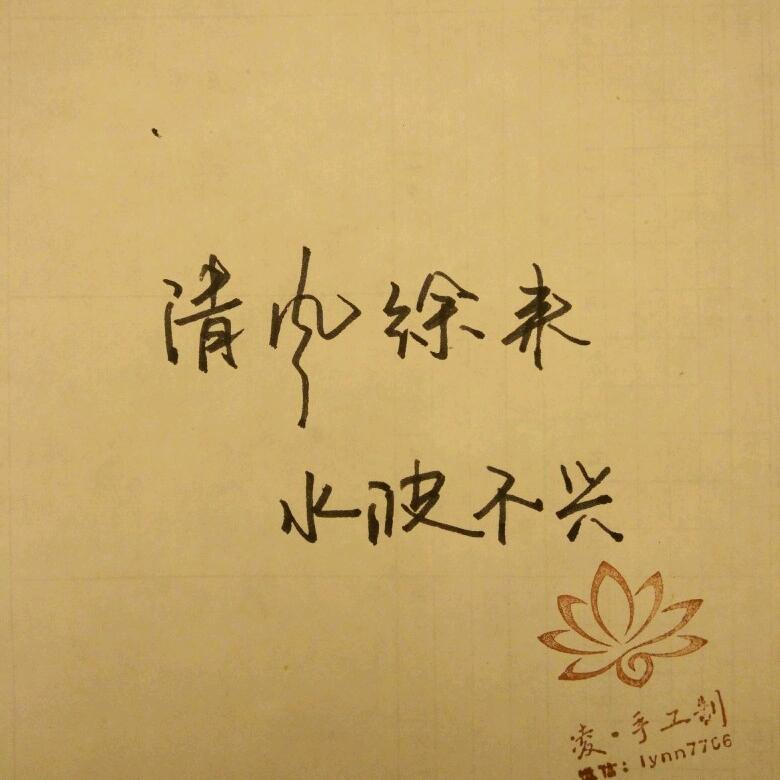 清风徐来
水波不兴
凌·手工制
微信：lynn7706